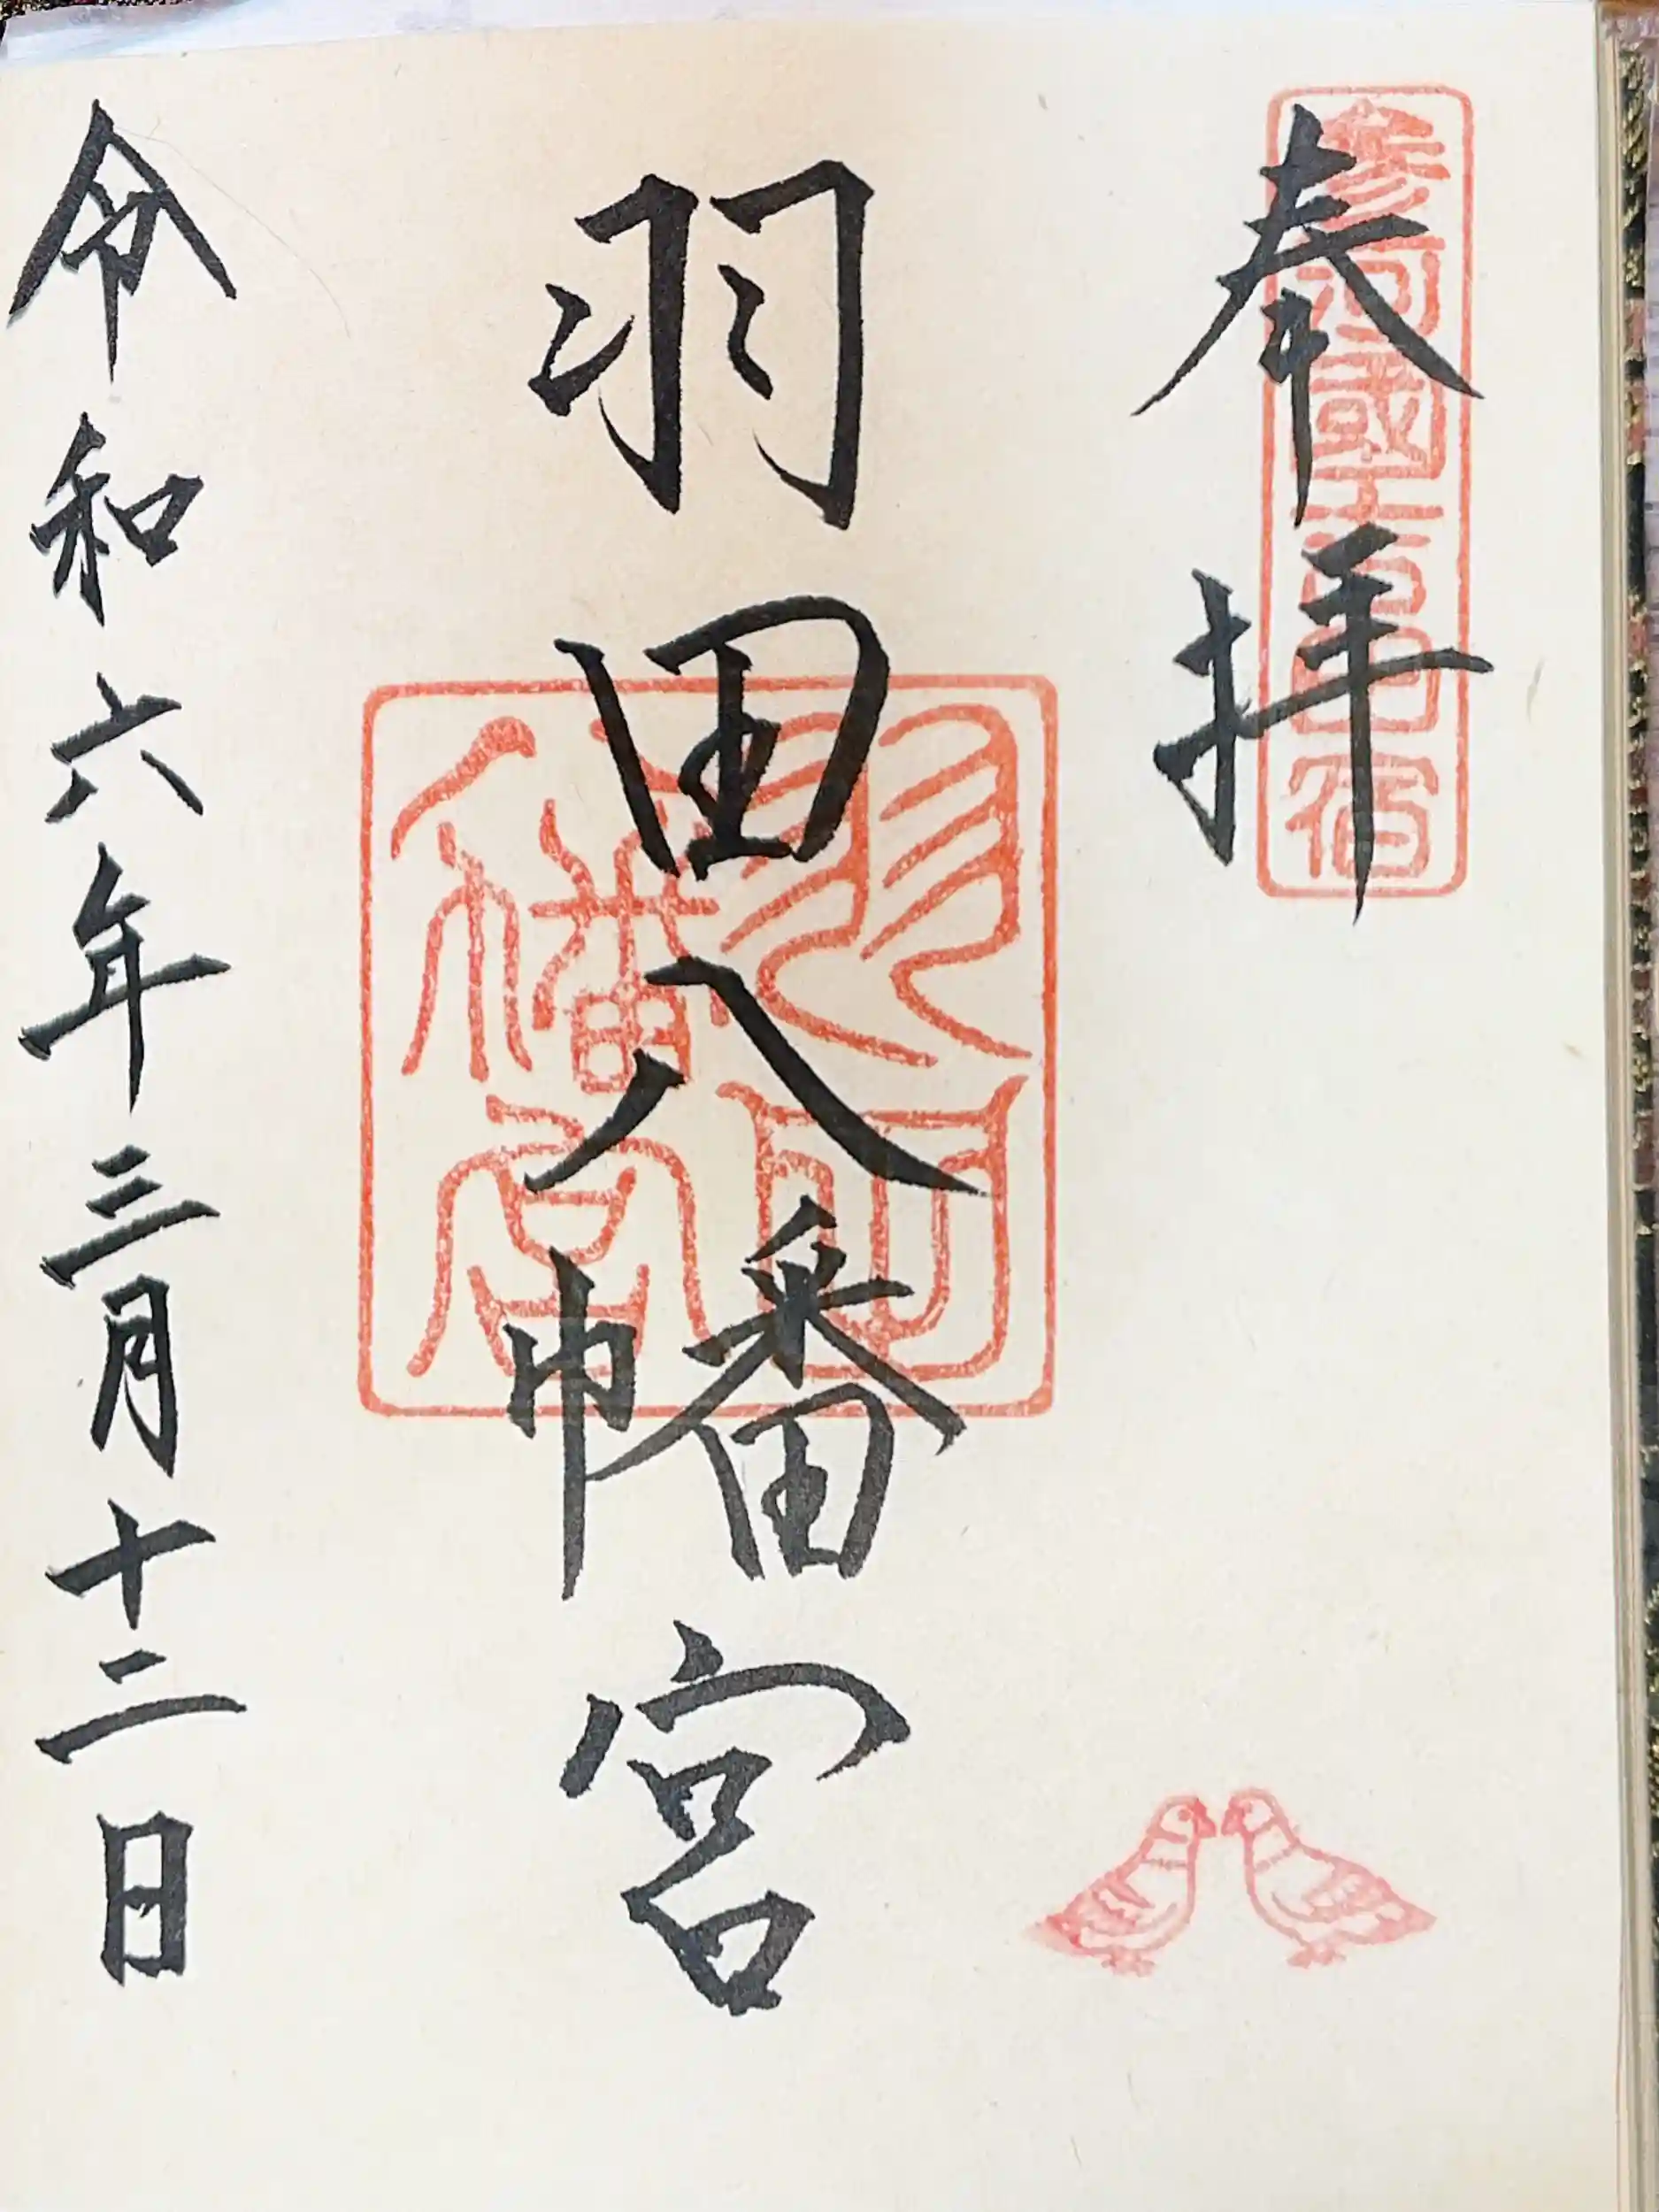 奉拝
參河國吉田宿
羽田八幡宮
羽田八幡宮
令和六年三月十二日